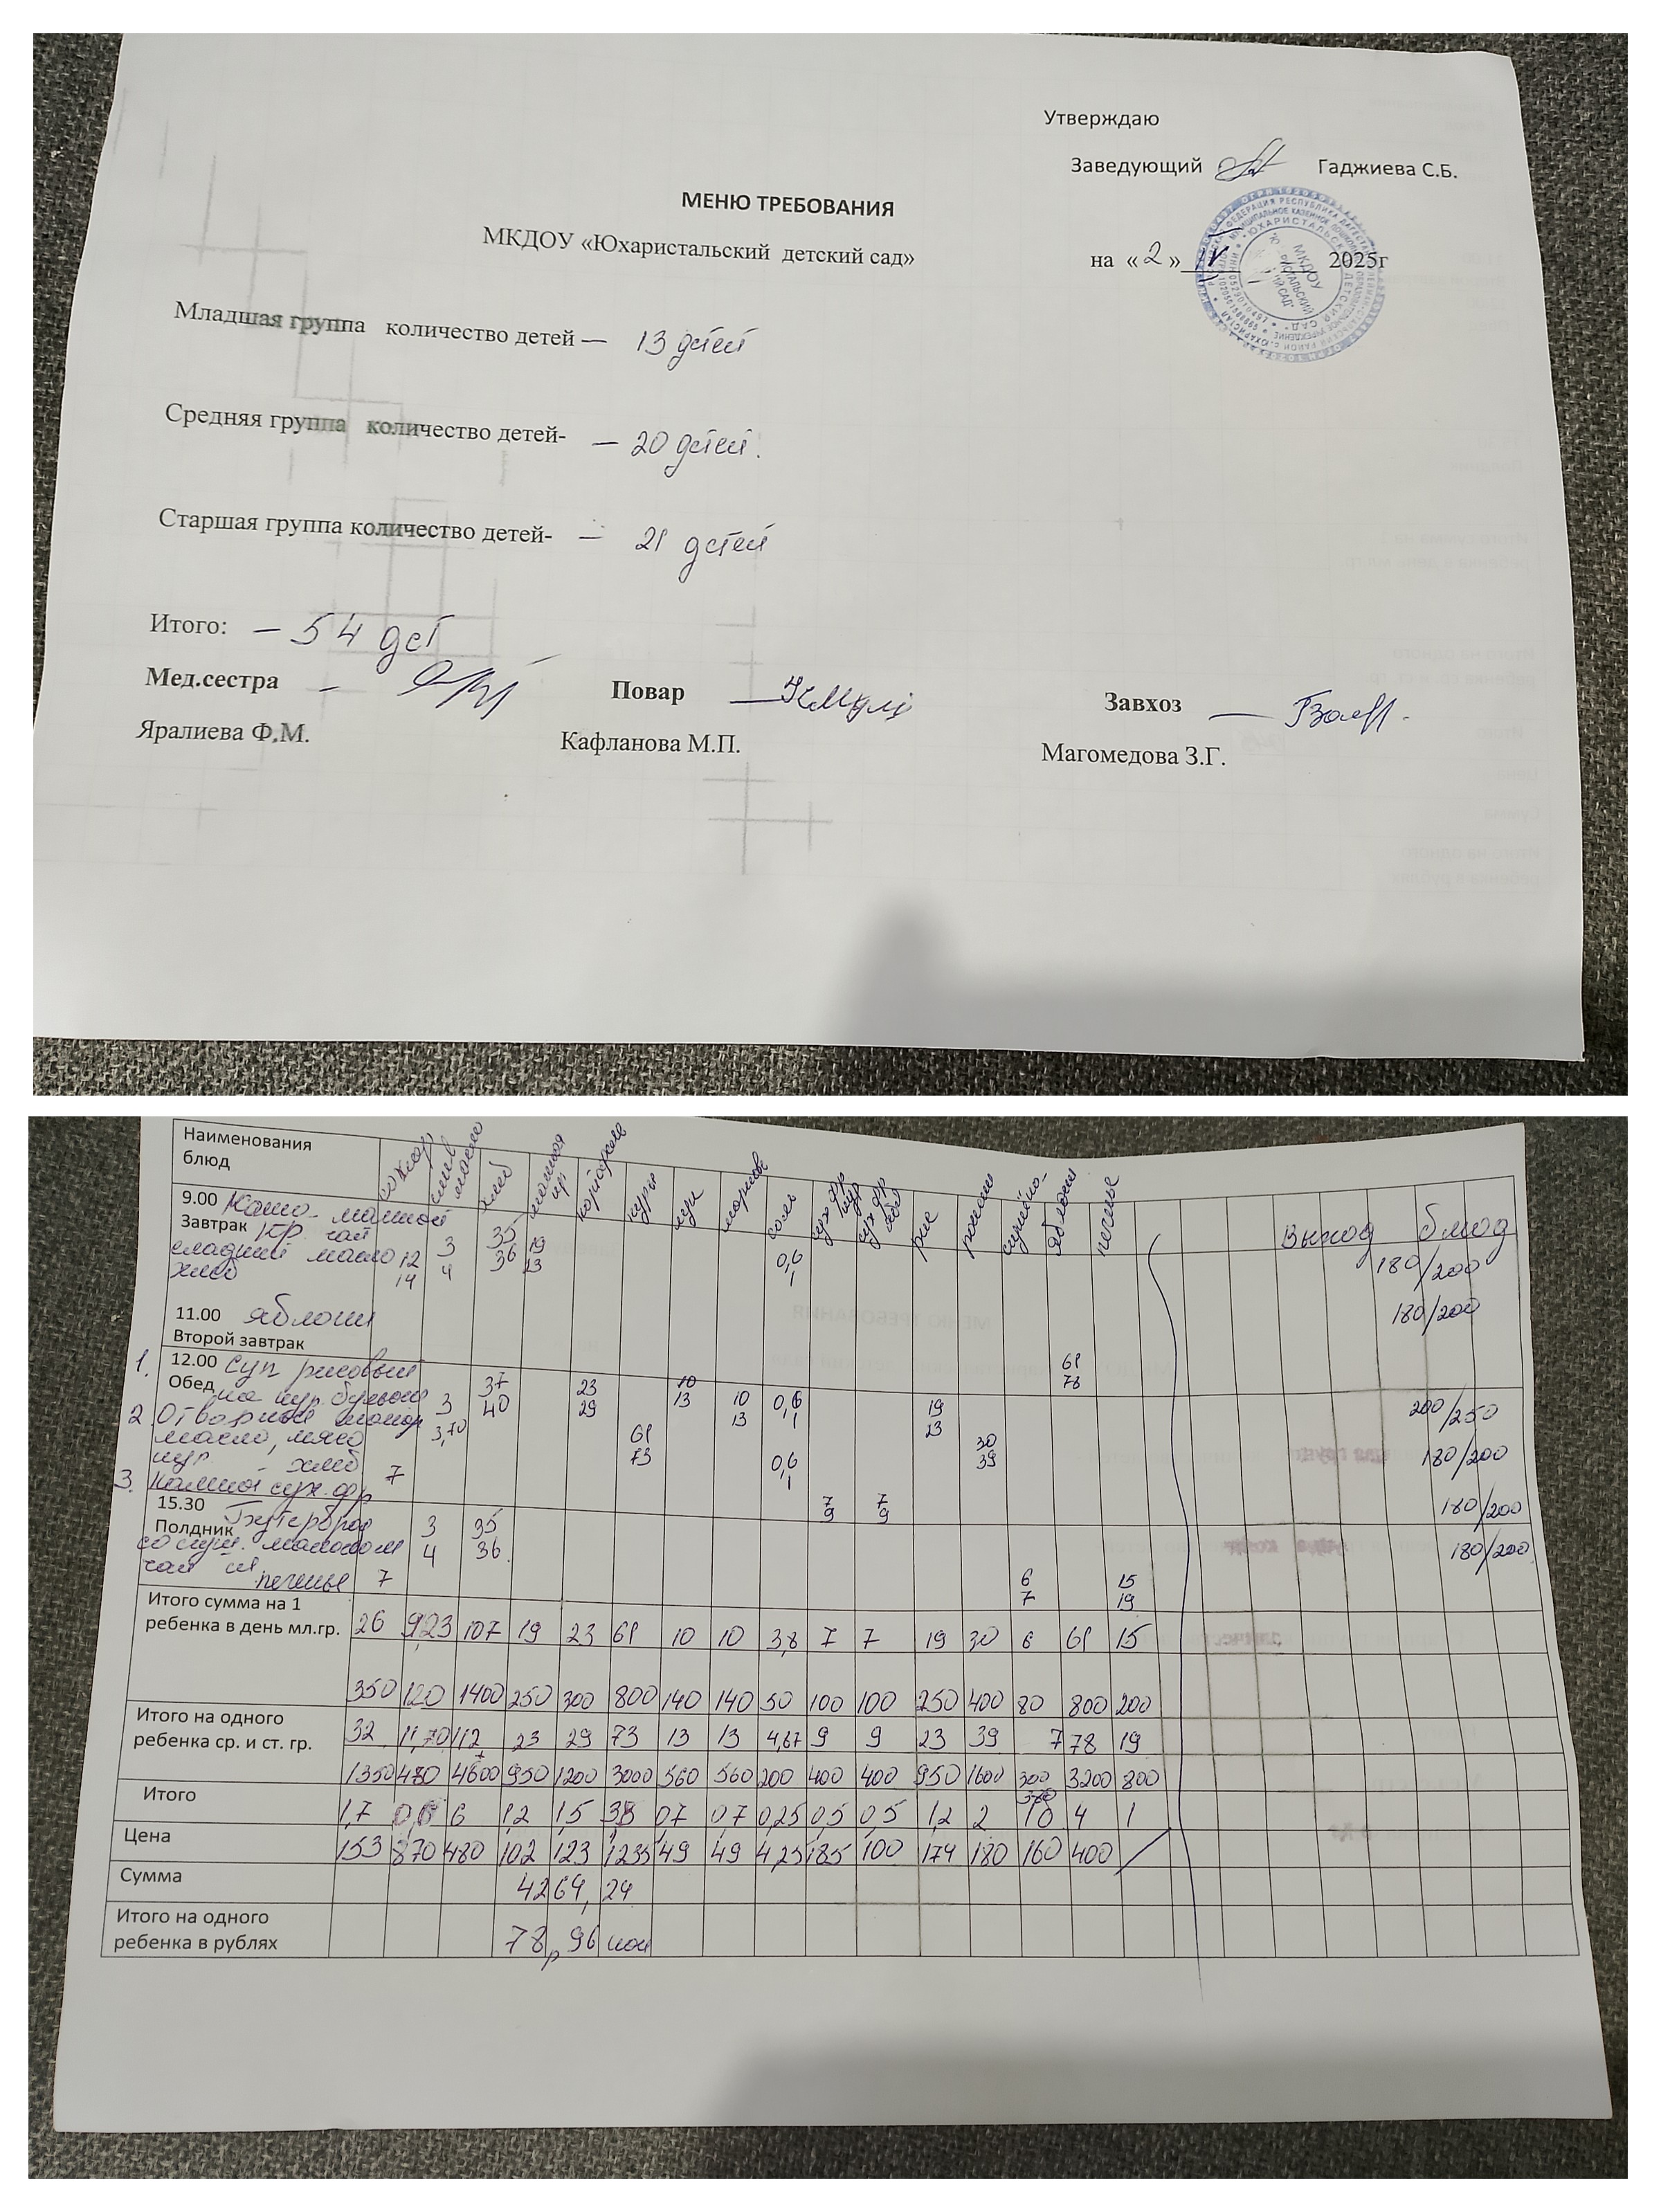 Утверждаю
Заведующий Гаджиева С.Б.
МЕНЮ ТРЕБОВАНИЯ
МКДОУ «Юхаристальский детский сад»
на «2» V 2025г
Младшая группа количество детей — 13 детей
Средняя группа количество детей- — 20 детей.
Старшая группа количество детей- — 21 детей
Итого: — 54 дет
Мед.сестра – Повар — Завхоз —
Яралиева Ф.М. Кафланова М.П. Магомедова З.Г.
Наименования блюд сахар слив масло хлеб манная кр картофель куры лук морковь соль сух фр сух фр рис молоко яблоки печенье
9.00 Каша манная
Завтрак чай
сладкий масло
хлеб
12 3 35 19 0,6
14 4 36 23 1
Выход блюд
180/200
11.00 яблоки 180/200
Второй завтрак
61
78
1. 12.00 Суп рисовый
Обед на кур. бульоне
37 23 10 10 0,6 19 200/250
3 40 29 13 13 1 23
2. Отварные макар
масло, мясо
кур. хлеб
3,70 61 30 180/200
73 0,6 39
1
3. Компот сух. фр
7 7 7 180/200
9 9
15.30 Бутерброд
Полдник
со сгущ. молоком
чай сл. печенье
3 35 180/200
4 36
7 6 15
7 19
Итого сумма на 1
ребенка в день мл.гр. 26 9,23 107 19 23 61 10 10 3,8 7 7 19 30 6 61 15
350 120 1400 250 300 800 140 140 50 100 100 250 400 80 800 200
Итого на одного
ребенка ср. и ст. гр. 32 11,70 112 23 29 73 13 13 4,67 9 9 23 39 7 78 19
1350 480 4600 950 1200 3000 560 560 200 400 400 950 1600 300 3200 800
Итого 1,7 0,6 6 1,2 1,5 3,8 0,7 0,7 0,25 0,5 0,5 1,2 2 4 1
Цена 153 870 480 102 123 1235 49 49 4,25 185 100 174 180 160 400
Сумма 4264,24
Итого на одного
ребенка в рублях 78р 96 коп